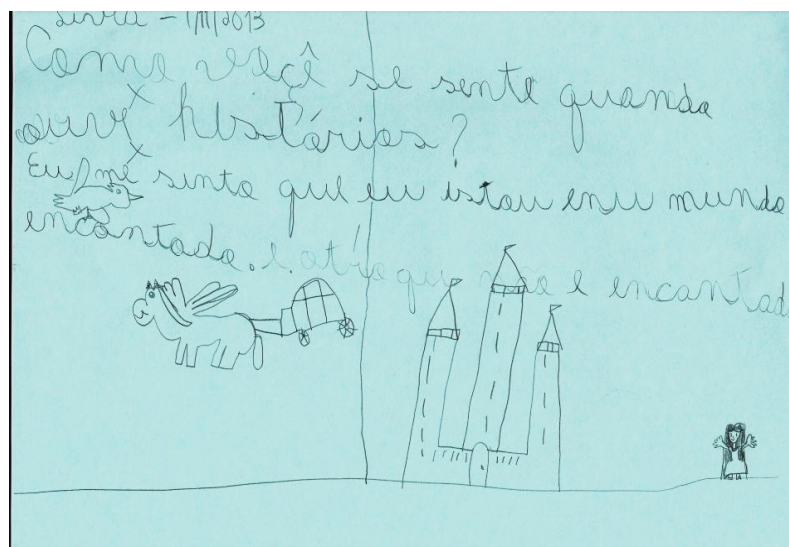 Livia - 1/11/2013
Como você se sente quando
ouve histórias?
Eu me sinto que eu istou enu mundo
encantado. e. que não e encantad